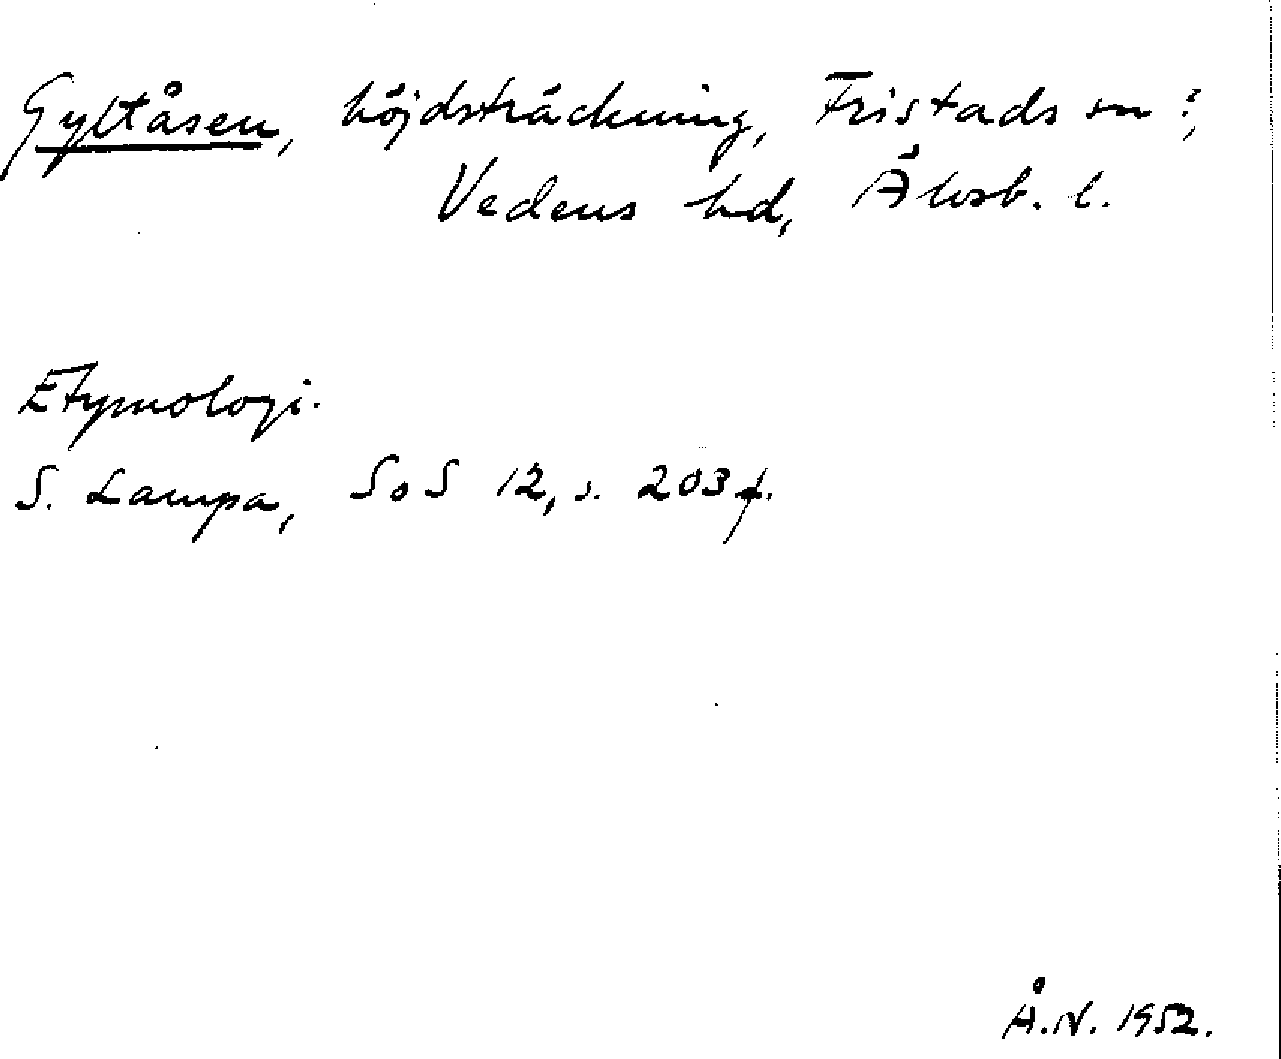 Gyltåsen, höjdsträckning, Fristads sn ?,
Vedens hd, Älvsb. l.
Etymologi.
S. Lampa, SoS 12, s. 203 f.
Å.N. 1952.